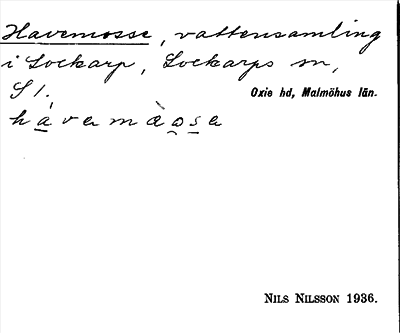 Havemosse, vattensamling
i Lockarp, Lockarps sn,
S 1. Oxie hd, Malmöhus län.
NILS NILSSON 1936.